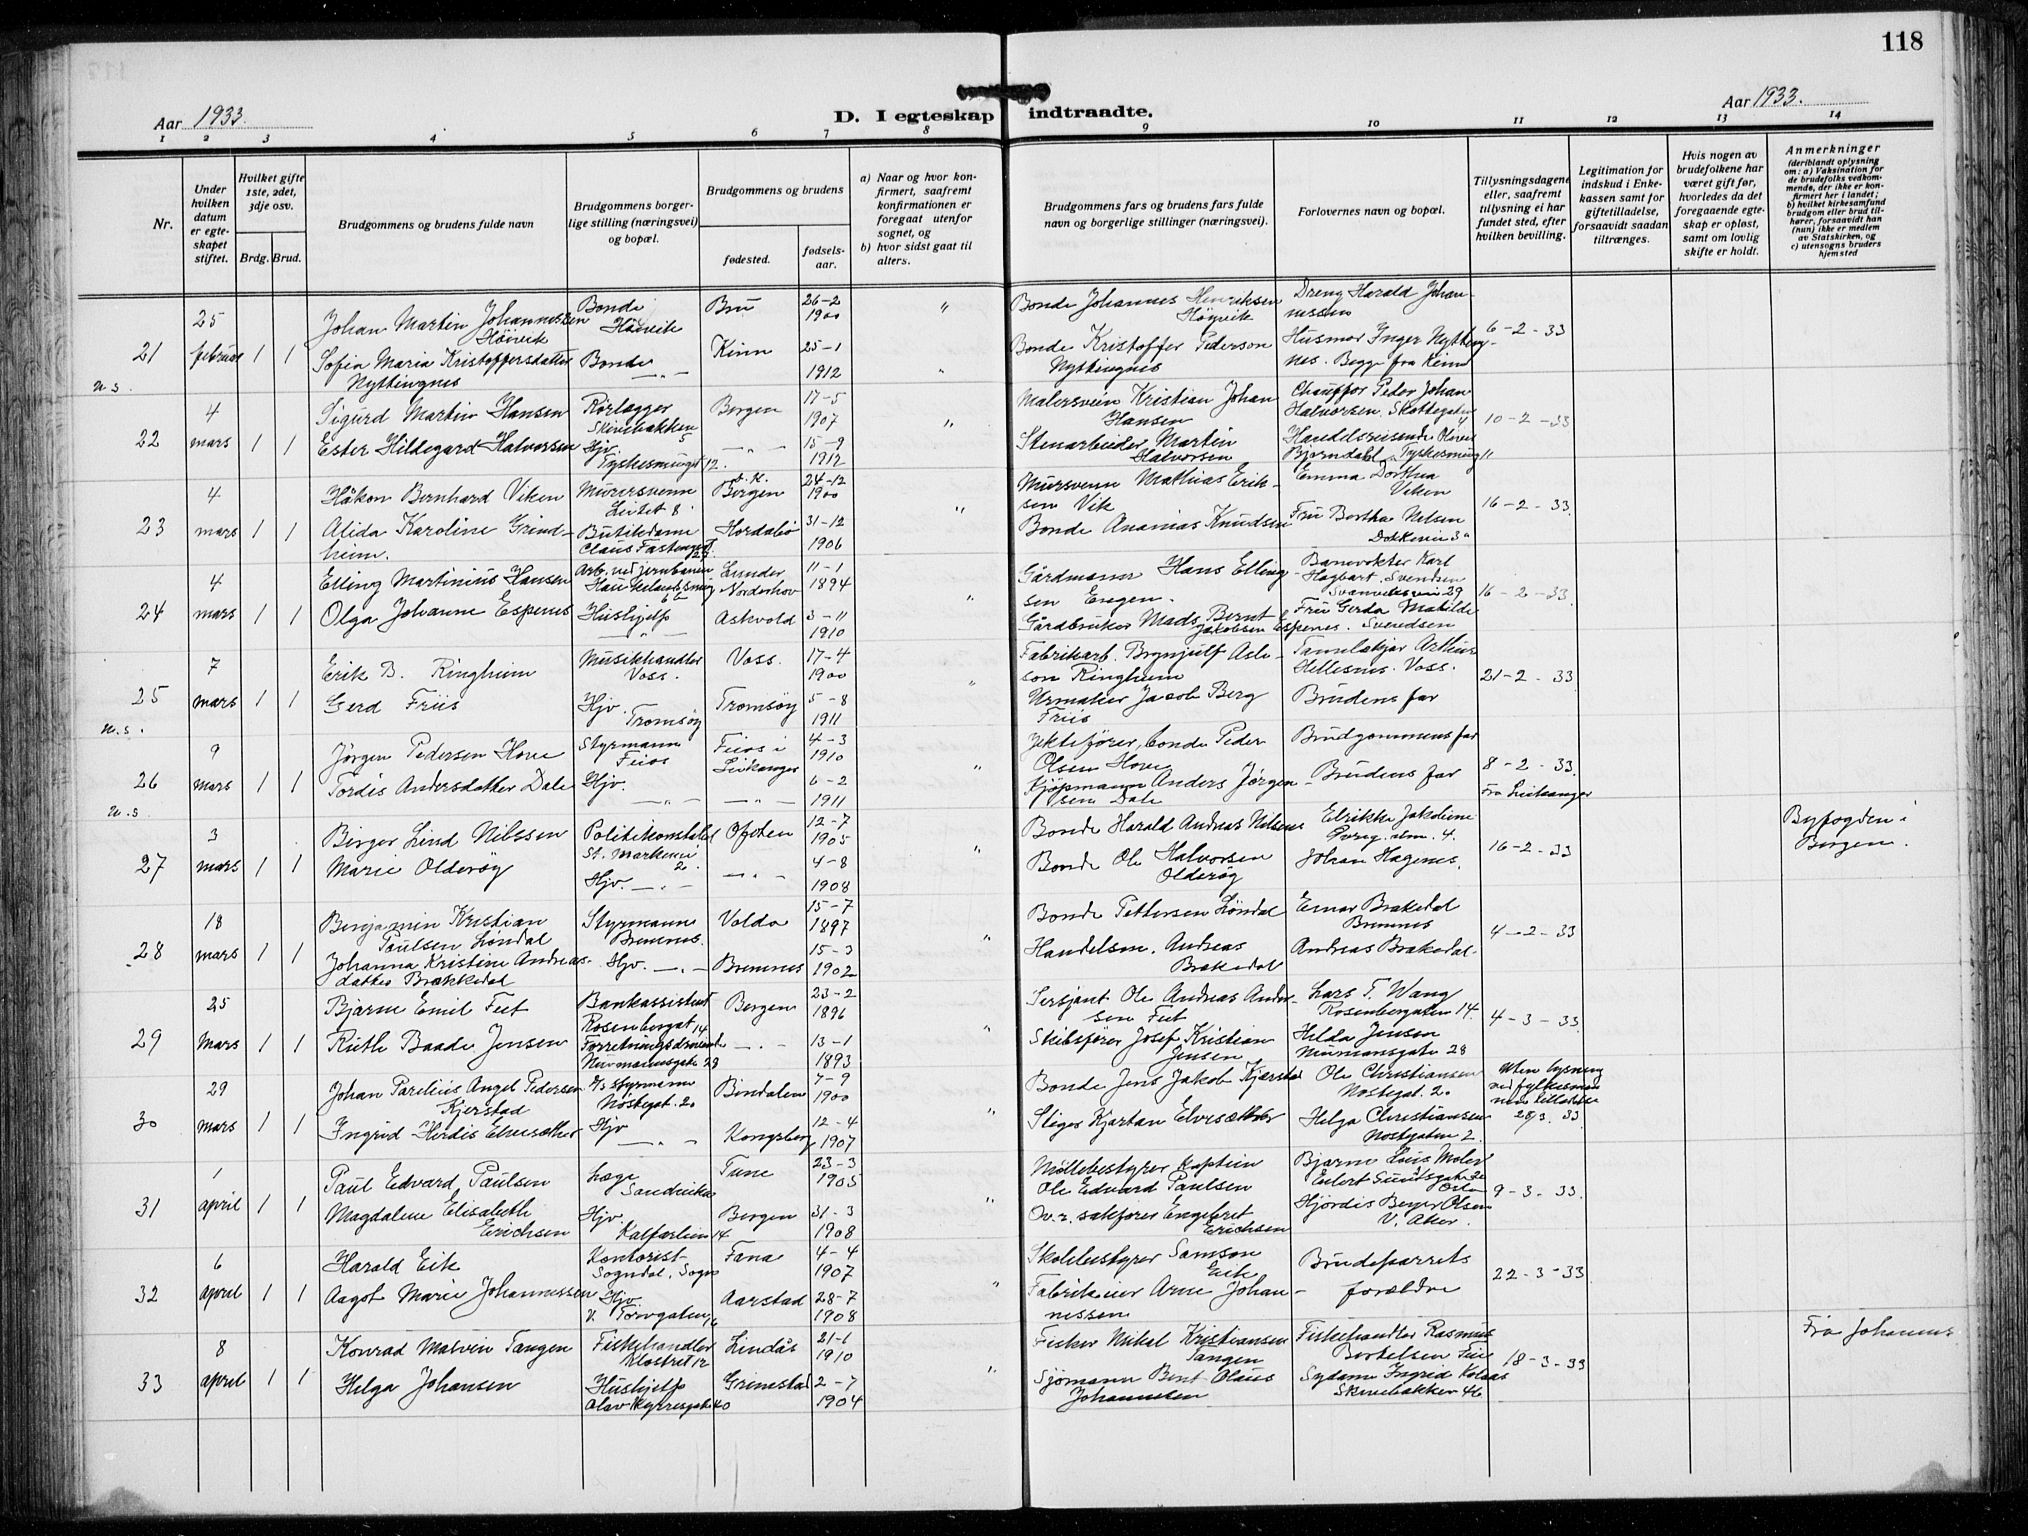 118
Aar 1933.
D. I egteskap indtraadte.
Aar 1933.
1 2 3 4 5 6 7 8 9 10 11 12 13 14
Nr.
Under hvilken datum er egteskapet stiftet.
Hvilket gifte 1ste, 2det, 3dje osv.
Brdg. Brud.
Brudgommens og brudens fulde navn
Brudgommens borgerlige stilling (næringsvei) og bopæl.
Brudgommens og brudens
fødested.
fødselsaar.
a) Naar og hvor konfirmert, saafremt konfirmationen er foregaat utenfor sognet, og
b) hvor sidst gaat til alters.
Brudgommens fars og brudens fars fulde navn og borgerlige stillinger (næringsvei).
Forlovernes navn og bopæl.
Tillysningsdagene eller, saafremt tillysning ei har fundet sted, efter hvilken bevilling.
Legitimation for indskud i Enkekassen samt for giftetilladelse, forsaavidt saadan tiltrænges.
Hvis nogen av brudefolkene har været gift før, hvorledes da det foregaaende egteskap er opløst, samt om lovlig skifte er holdt.
Anmerkninger
(deriblandt oplysning om: a) Vaksination for de brudefolks vedkommende, der ikke er konfirmert her i landet; b) hvilket kirkesamfund brudgom eller brud tilhører, forsaavidt han (hun) ikke er medlem av Statskirken, og c) utensogns bruders hjemsted
21 25 februar 1 1
Johan Martin Johannessen Høivik
Bonde Høivik
Bru 26-2 1900 "
Bonde Johannes Henriksen Høyvik
Dreng Harald Johannessen
6-2-33
Sofia Maria Kristoffersdatter Nyttingnes
Bonde —"—
Kinn 25-1 1912 "
Bonde Kristoffer Pederson Nyttingnes
Husmor Inger Nyttingnes. Begge fra Kinn
u.s.
22 4 mars 1 1
Sigurd Martin Hansen
Rørlægger Skivebakken 5
Bergen 17-5 1907 "
Malersvein Kristian Johan Hansen
Chauffør Peder Johan Halvorsen. Skottegaten
10-2-33
Ester Hildegard Halvorsen
Hjv. Tyskesmuget 12.
—"— 15-9 1912
Stenarbeider Martin Halvorsen
Handelsreisende Oliver Bjørndal, Tyskesmug 11
23 4 mars 1 1
Håkon Bernhard Viken
Murersvenn Leitet 8
D.K. Bergen 24-12 1900 "
Mursvenn Mathias Eriksen Vik
Emma Dorthea Viken
16-2-33.
Alida Karoline Grindheim.
Butikdame Claus Fastingsgt 23.
Hordabø 31-12 1906
Bonde Ananias Knudsen
Fru Bertha Nelsen Dokkevei 3a
24 4 mars 1 1
Elling Martinius Hansen
Arb. ved jernbanen Haukelandsmug 66
Lunder Norderhov 11-1 1894 "
Gårdmann Hans Ellingsen Engen.
Banevokter Karl Hagbart Svendsen Svaneviksvei 29
16-2-33.
Olga Johanne Espenes
Hushjelp —"—
Askvold 3-11 1910
Gårdbruker Mads Bernt Jakobsen Espenes.
Fru Gerda Matilde Svendsen
25 7 mars 1 1
Erik B. Ringheim
Musikhandler Voss.
Voss. 17-4 1900 "
Fabrikarb. Brynjulf Asleson Ringheim
Tannlækjar Arthur Hellesnes. Voss.
21-2-33.
Gerd Friis
Hjv. Tromsøy
Tromsøy 5-8 1911
Urmaker Jacob Berg Friis
Brudens far
u.s.
26 9 mars 1 1
Jørgen Pedersen Hove
Styrmann Feios
Feios i Leikanger 4-3 1910 "
Jektefører, bonde Peder Olsen Hove
Brudgommens far
8-2-33. Fra Leikanger
Tordis Andersdatter Dale
Hjv. —"—
—"— 6-2 1911
Kjøpmann Anders Jørgensen Dale
Brudens far
u.s.
27 3 mars 1 1
Birger Lind Nilssen
Politikonstabel St. Markevei 2.
Ofoten 12-7 1905 "
Bonde Harald Andreas Nelsen
Elrikke Jakobine 4.
16-2-33
Byfogden i Bergen.
Marie Olderøy
Hjv. —"—
—"— 4-8 1908
Bonde Ole Halvorsen Olderøy
Johan Hagenes.
28 18 mars 1 1
Benjamin Kristian Paulsen Løndal
Styrmann Bremnes.
Volda 15-7 1897 "
Bonde Pettersen Løndal
Einar Brakedal Bremnes
4-2-33
Johanna Kristine Andreasdatter Brækkedal
Hjv. —"—
Bremnes 15-3 1902
Handelsm. Andreas Brakedal
Andreas Brakedal
29 25 Mars 1 1
Bjarne Emil Feet
Bankassistent Rosenbergsgt. 14
Bergen 23-2 1896 "
Sersjant Ole Andreas Andersen Feet
Lars T. Wang Rosenbergsgaten 14.
4-3-33.
Ruth Baade Jensen
Forretningsdrivende Nurmannsgate 28
—"— 13-1 1893
Skibsfører Josef Kristian Jensen
Hilda Jensen Nurmansgate 28
30 29 mars 1 1
Johan Parelius Angel Pedersen Kjerstad
styrmann Nøstegat. 20
Bindalen 7-9 1900 "
Bonde Jens Jakob Kjærstad
Ole Christiansen Nøstegat. 2.
Uten lysning ved fylkesmannens tilladelse 28/3. 33.
Ingrid Herdis Elvesæther
Hjv —"—
Kongsberg 12-4 1907
Steiger Kjartan Elvesæther
Helga Christiansen Nøstgaten 2.
31 1 april 1 1
Paul Edvard Paulsen
Læge Sandviken
Tune 23-3 1905 "
Møllebestyrer Kaptein Ole Edvard Paulsen
Bjarne Louis Moler Eilert Sundtsgate 32 Oslo
9-3-33.
Magdalene Elisabeth Erichsen
Hjv. Kalfarlien 14
Bergen 31-3 1908
Ov.r. sakfører Engebret Erichsen
Hjørdis Beyer Olsen V. Aker.
32 6 april 1 1
Harald Eik
Kontorist Sogndal, Sogn
Fana 4-4 1907 "
Skolebestyrer Samson Eik
Brudeparrets forældre
22-3-33
Aagot Marie Johannessen
Hjv V. Torvgaten 16
Aarstad 28-7 1908
Fabrikeier Arne Johannessen
33 8 april 1 1
Konrad Malvin Tangen
Fiskehandler Klostret 12
Lindås 21-1 1910 "
Fisker Mikal Kristiansen Tangen
Fiskehandler Rasmus Bertelsen Feie
18-3-33
Fra Johannes
Helga Johansen
Hushjelp Olav Kyrresgate 40
Grimstad 2-7 1904
Sjømann Bent Olaus Johannesen
Sydame Ingrid Kolaas Skivebakken 46